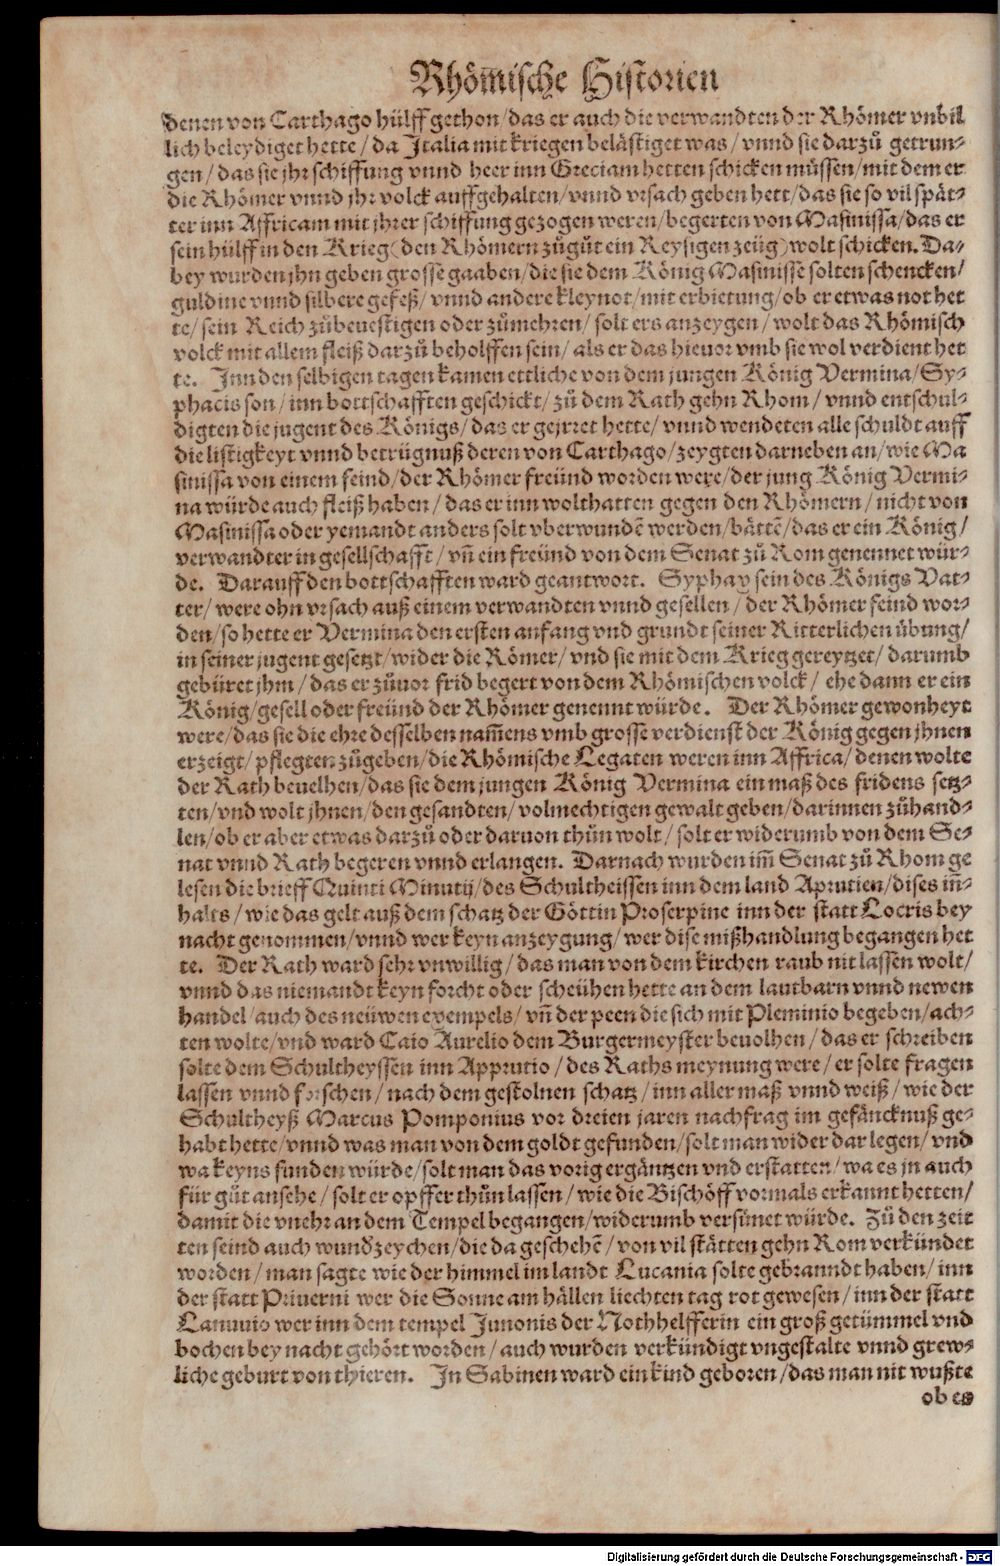 Rhöm̃ische Historien
denen von Carthago hülff gethon/das er auch die verwandten der Rhömer vnbil
lich beleydiget hette/da Italia mit kriegen belästiget was/vnnd sie darzů getrun-
gen/das sie jhr schiffung vnnd heer inn Greciam hetten schicken müssen/mit dem er
die Rhömer vnnd jhr volck auffgehalten/vnnd vrsach geben hett/das sie so vil spät-
ter inn Affricam mit jhrer schiffung gezogen weren/begerten von Masinissa/das er
sein hülff in den Krieg(den Rhömern zůgůt ein Reysigen zeüg)wolt schicken. Da-
bey wurden jhn geben grosse gaaben/die sie dem König Masinisse solten schencken/
guldine vnnd silbere gefeß/vnnd andere kleynot/mit erbietung/ob er etwas not het
te/sein Reich zůbeuestigen oder zůmehren/solt ers anzeygen/wolt das Rhömisch
volck mit allem fleiß darzů beholffen sein/als er das hieuor vmb sie wol verdient het
te. Inn den selbigen tagen kamen ettliche von dem jungen König Vermina/Sy-
phacis son/inn bottschafften geschickt/zů dem Rath gehn Rhom/vnnd entschul-
digten die jugent des Königs/das er gejrret hette/vnnd wendeten alle schuldt auff
die listigkeyt vnnd betrügnuß deren von Carthago/zeygten darneben an/wie Ma
sinissa von einem feind/der Rhömer freünd worden were/der jung König Vermi-
na würde auch fleiß haben/das er inn wolthatten gegen den Rhömern/nicht von
Masinissa oder yemandt anders solt vberwundẽ werden/bättẽ/das er ein König/
verwandter in gesellschafft/vñ ein freünd von dem Senat zů Rom genennet wür-
de. Darauff den bottschafften ward geantwort. Syphax sein des Königs Vat-
ter/were ohn vrsach auß einem verwandten vnnd gesellen/der Rhömer feind wor-
den/so hette er Vermina den ersten anfang vnd grundt seiner Ritterlichen übung/
in seiner jugent gesetzt/wider die Römer/vnd sie mit dem Krieg gereytzet/darumb
gebüret jhm/das er zůuor frid begert von dem Rhömischen volck/ehe dann er ein
König/gesell oder freünd der Rhömer genennt würde. Der Rhömer gewonheyt
were/das sie die ehre desselben nam̃ens vmb grosse verdienst der König gegen jhnen
erzeigt/pflegten zůgeben/die Rhömische Legaten weren inn Affrica/denen wolte
der Rath beuelhen/das sie dem jungen König Vermina ein maß des fridens setz-
ten/vnd wolt jhnen/den gesandten/volmechtigen gewalt geben/darinnen zůhand-
len/ob er aber etwas darzů oder daruon thůn wolt/solt er widerumb von dem Se-
nat vnnd Rath begeren vnnd erlangen. Darnach wurden im̃ Senat zů Rhom ge
lesen die brieff Quinti Minutij/des Schultheissen inn dem land Aprutien/dises in̄-
halts/wie das gelt auß dem schatz der Göttin Proserpine inn der statt Locris bey
nacht genommen/vnnd wer keyn anzeygung/wer dise mißhandlung begangen het
te. Der Rath ward sehr vnwillig/das man von dem kirchen raub nit lassen wolt/
vnnd das niemandt keyn forcht oder scheühen hette an dem lautbarn vnnd newen
handel/auch des neüwen exempels/vñ der peen die sich mit Pleminio begeben/ach-
ten wolte/vnd ward Caio Aurelio dem Burgermeyster beuolhen/das er schreiben
solte dem Schultheyssen inn Apprutio/des Raths meynung were/er solte fragen
lassen vnnd forschen/nach dem gestolnen schatz/inn aller maß vnnd weiß/wie der
Schultheyß Marcus Pomponius vor dreien jaren nachfrag im gefäncknuß ge-
habt hette/vnnd was man von dem goldt gefunden/solt man wider dar legen/vnd
wa keyns funden würde/solt man das vorig ergäntzen vnd erstatten/wa es jn auch
für gůt ansehe/solt er opffer thůn lassen/wie die Bischöff vormals erkannt hetten/
damit die vnehr an dem Tempel begangen/widerumb versünet würde. Zů den zeit
ten seind auch wundzeychen/die da geschehẽ/von vil stätten gehn Rom verkündet
worden/man sagte wie der himmel im landt Lucania solte gebranndt haben/inn
der statt Priuerni wer die Sonne am hällen liechten tag rot gewesen/inn der statt
Lanuuio wer inn dem tempel Junonis der Nothhelfferin ein groß getümmel vnd
bochen bey nacht gehört worden/auch wurden verkündigt vngestalte vnnd grew-
liche geburt von thieren. In Sabinen ward ein kind geboren/das man nit wußte
ob es
Digitalisierung gefördert durch die Deutsche Forschungsgemeinschaft - DFG